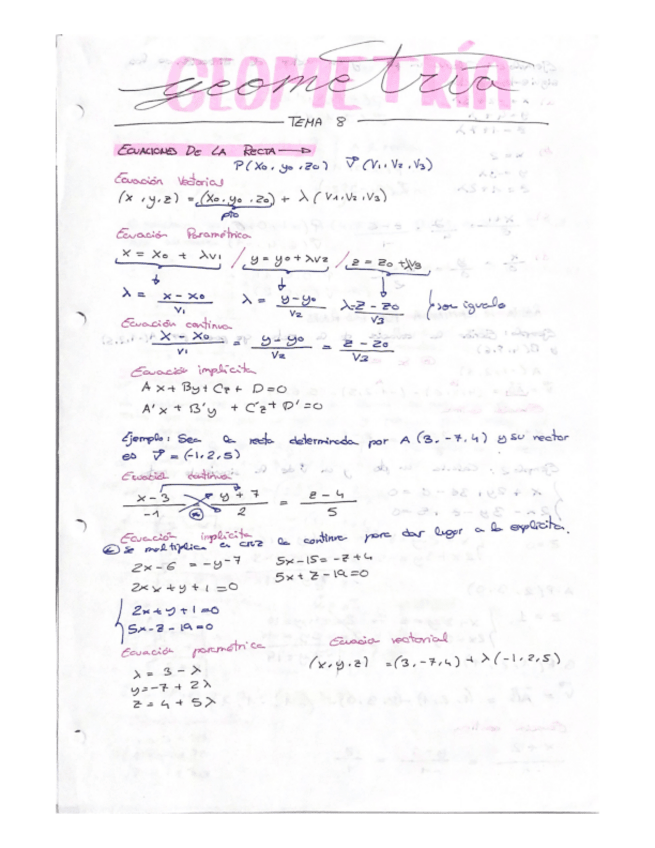 GEOMETRÍA
geometría
TEMA 8
ECUACIONES DE LA RECTA →
P(x₀, y₀, z₀) v⃗ (v₁, v₂, v₃)
Ecuación Vectorial
(x, y, z) = (x₀, y₀, z₀) + λ (v₁, v₂, v₃)
pto
Ecuación Paramétrica
x = x₀ + λv₁ / y = y₀ + λv₂ / z = z₀ + λv₃
λ = (x - x₀)/v₁ λ = (y - y₀)/v₂ λ = (z - z₀)/v₃ son iguales
Ecuación continua
(x - x₀)/v₁ = (y - y₀)/v₂ = (z - z₀)/v₃
Ecuación implícita
Ax + By + Cz + D = 0
A'x + B'y + C'z + D' = 0
Ejemplo: Sea la recta determinada por A (3, -7, 4) y su vector
es v⃗ = (-1, 2, 5)
Ecuación continua
(x - 3)/-1 = (y + 7)/2 = (z - 4)/5
Ecuación implícita
Se multiplica en cruz la continua para dar lugar a la explícita.
2x - 6 = -y - 7 5x - 15 = -z + 4
2x + y + 1 = 0 5x + z - 19 = 0
2x + y + 1 = 0
5x - z - 19 = 0
Ecuación paramétrica Ecuación vectorial
λ = 3 - λ (x, y, z) = (3, -7, 4) + λ (-1, 2, 5)
y = -7 + 2λ
z = 4 + 5λ